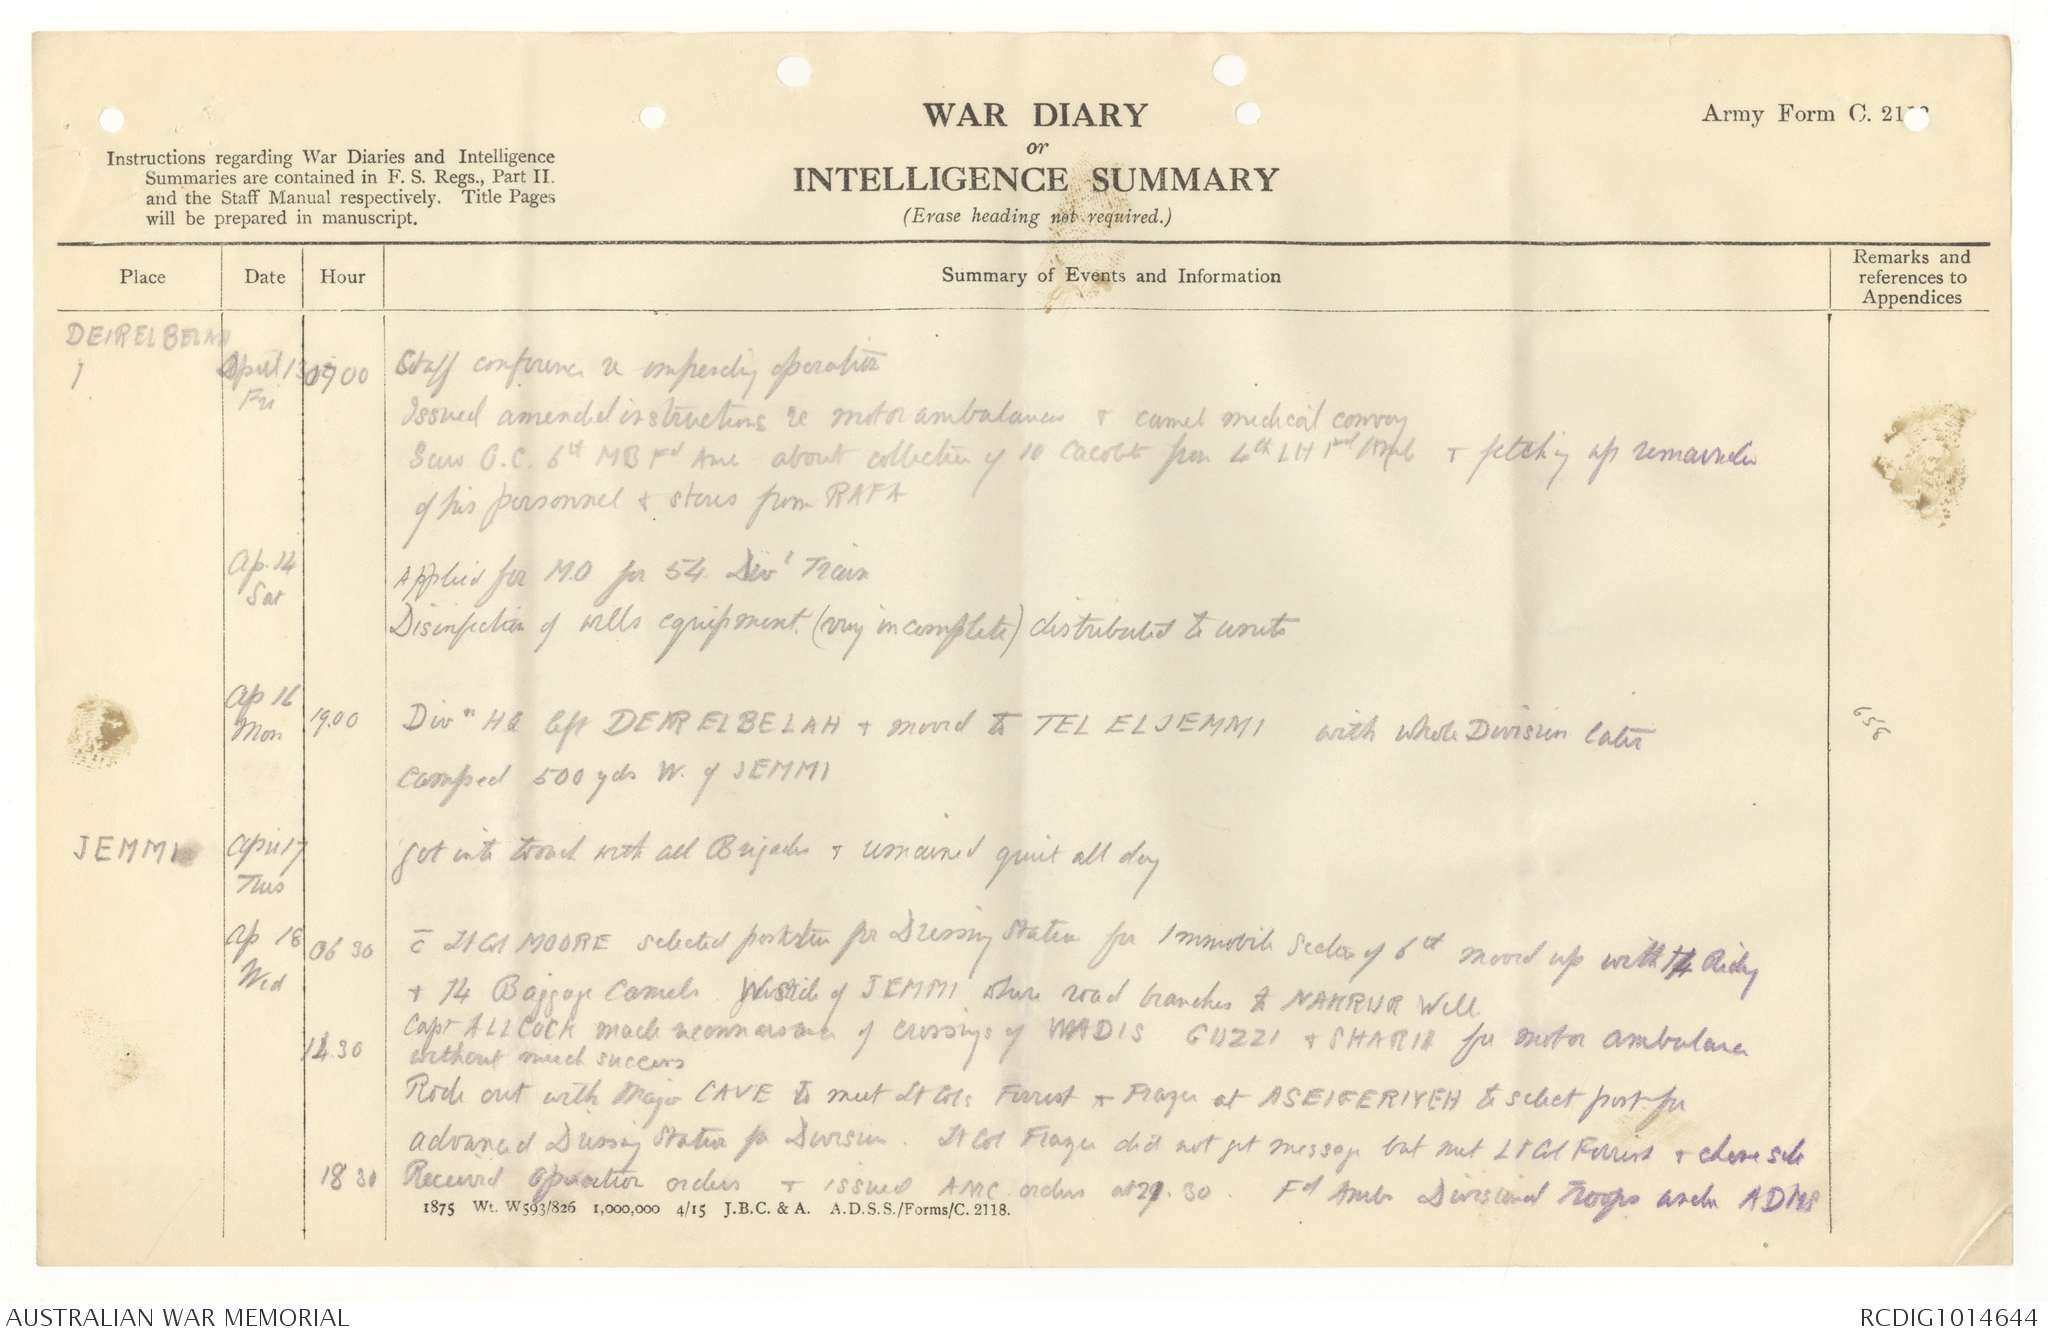 WAR DIARY
or
INTELLIGENCE SUMMARY
(Erase heading not required.)
Army Form C. 21
Instructions regarding War Diaries and Intelligence
Summaries are contained in F. S. Regs., Part II.
and the Staff Manual respectively. Title Pages
will be prepared in manuscript.
Place Date Hour Summary of Events and Information Remarks and references to Appendices
DEIRELBELAH
April 13 Fri 0900 Staff conference re impending operation
Issued amended instructions re motor ambulances + camel medical convoy
Saw O.C. 6th MB Fd Amb about collection of 10 cacolets from 4th LH Fd Amb + fetching up remainder
of his personnel + stores from RAFA
Ap. 14 Sat Applied for M.O for 54 Divl Train
Disinfection of wells equipment (very incomplete) distributed to units
Ap 16 Mon 19.00 Divn HQ left DEIRELBELAH + moved to TEL EL JEMMI with whole Division later
camped 500 yds W. of JEMMI
658
JEMMI April 17 Tues Got into touch with all Brigades + remained quiet all day
Ap 18 Wed 06 30 c̄ Lt Col MOORE selected position for Dressing Station for Immobile Section of 6th moved up with 14 Riding
+ 74 Baggage Camels. of JEMMI where road branches to NAHRUR Well
14.30 Capt ALLCOCK made reconnaissance of crossings of WADIS GUZZI + SHARIA for motor ambulance
without much success
Rode out with Major CAVE to meet Lt Cols Forrest + Frazer at ASEIFERIYEH to select post for
advanced Dressing Station for Division. Lt Col Frazer did not get message but met Lt Col Forrest + chose site
18 30 Received operation orders + issued AMC orders at 21.30. Fd Amb Divisional Troops under ADMS
1875 Wt. W593/826 1,000,000 4/15 J.B.C. & A. A.D.S.S./Forms/C. 2118.
AUSTRALIAN WAR MEMORIAL
RCDIG1014644